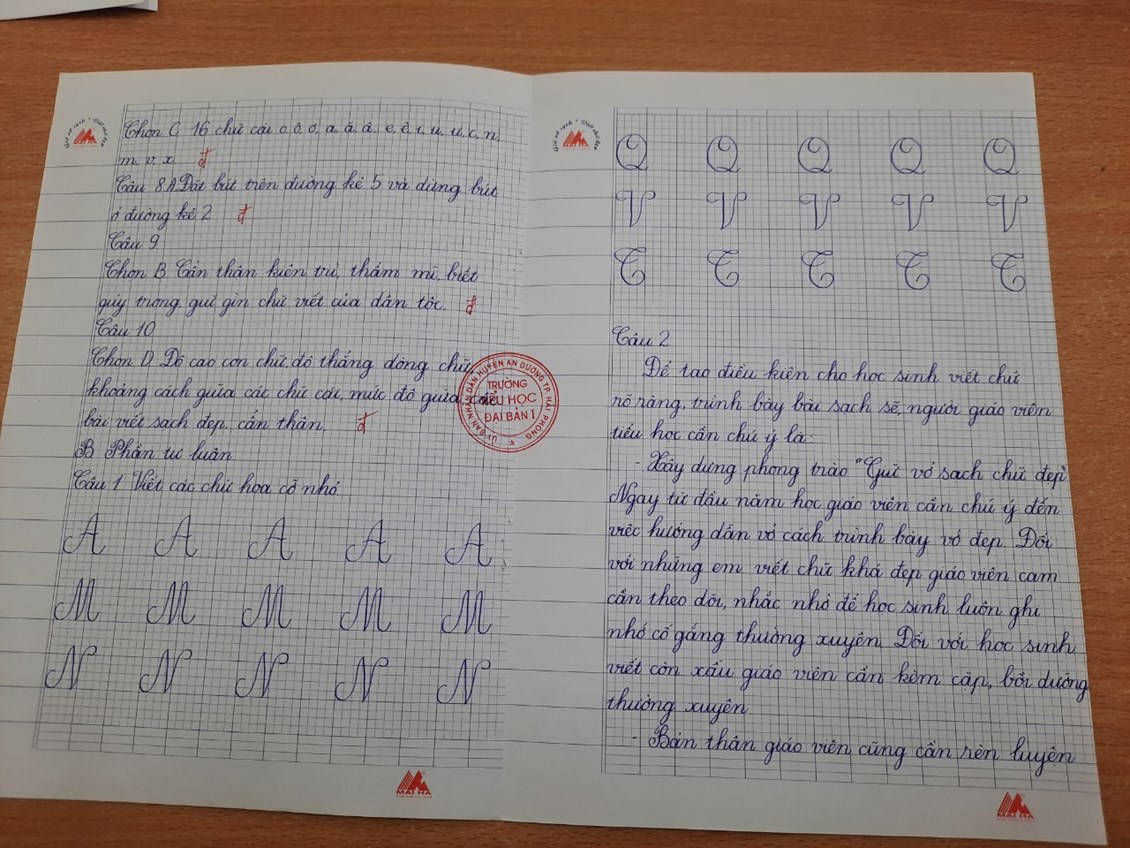 Chọn C 16 chữ cái o, ô, ơ, a, ă, â, e, ê, i, u, ư, c, n,
m, v, x. đ
Câu 8 A Đặt bút trên đường kẻ 5 và dừng bút
ở đường kẻ 2 đ
Câu 9
Chọn B Cẩn thận kiên trì, thẩm mĩ, biết
quý trọng giữ gìn chữ viết của dân tộc. đ
Câu 10
Chọn D Độ cao con chữ, độ thẳng dòng chữ,
khoảng cách giữa các chữ cái, mức độ giữa
bài viết sạch đẹp, cẩn thận. đ
B Phần tự luận
Câu 1 Viết các chữ hoa cỡ nhỏ
A A A A A
M M M M M
N N N N N
ỦY BAN NHÂN DÂN HUYỆN AN DƯƠNG TP HẢI PHÒNG
TRƯỜNG
TIỂU HỌC
ĐẠI BẢN I
MAI HA
Giữ vở sạch - Viết chữ đẹp
Q Q Q Q Q
V V V V V
T T T T T
Câu 2
Để tạo điều kiện cho học sinh viết chữ
rõ ràng, trình bày bài sạch sẽ, người giáo viên
tiểu học cần chú ý là:
- Xây dựng phong trào "Giữ vở sạch chữ đẹp"
Ngay từ đầu năm học giáo viên cần chú ý đến
việc hướng dẫn vở cách trình bày vở đẹp. Đối
với những em viết chữ khá đẹp giáo viên cam
cần theo dõi, nhắc nhở để học sinh luôn ghi
nhớ cố gắng thường xuyên. Đối với học sinh
viết còn xấu giáo viên cần kèm cặp, bồi dưỡng
thường xuyên
- Bản thân giáo viên cũng cần rèn luyện
MAI HA